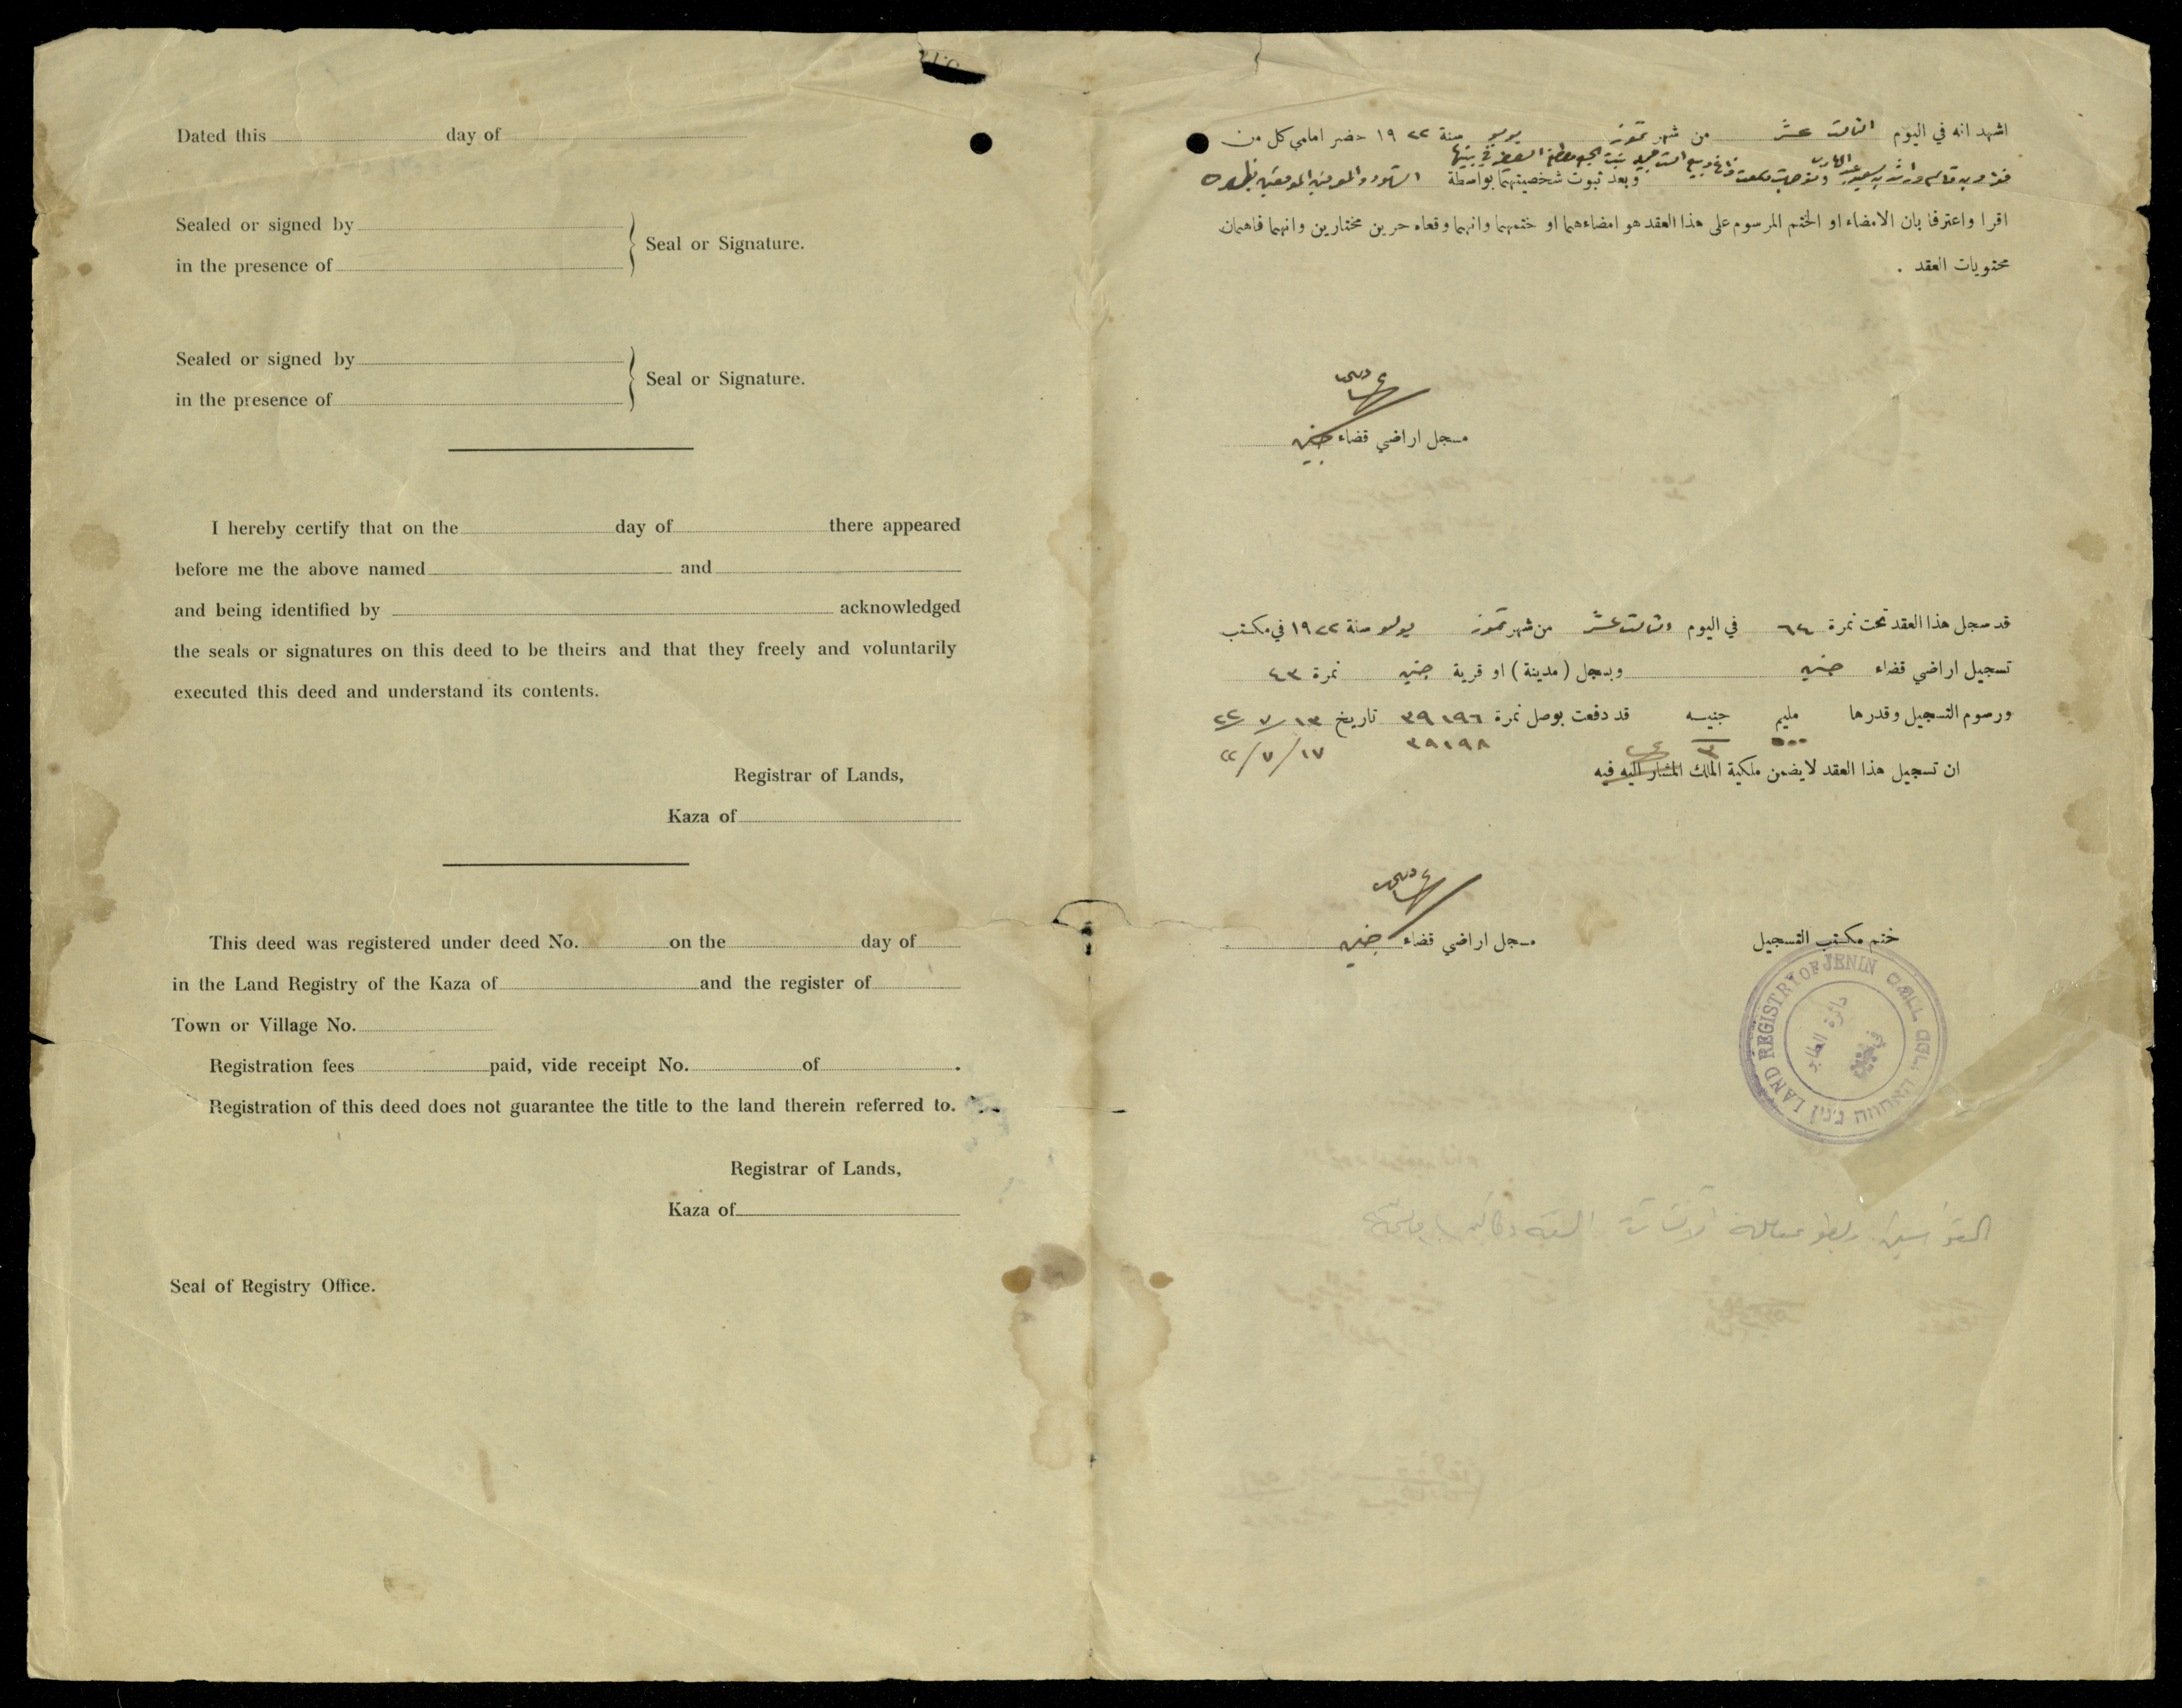 Dated this day of
Sealed or signed by
in the presence of
Seal or Signature.
Sealed or signed by
in the presence of
Seal or Signature.
I hereby certify that on the day of there appeared
before me the above named and
and being identified by acknowledged
the seals or signatures on this deed to be theirs and that they freely and voluntarily
executed this deed and understand its contents.
Registrar of Lands,
Kaza of
This deed was registered under deed No. on the day of
in the Land Registry of the Kaza of and the register of
Town or Village No.
Registration fees paid, vide receipt No. of .
Registration of this deed does not guarantee the title to the land therein referred to.
Registrar of Lands,
Kaza of
Seal of Registry Office.
اشهد انه في اليوم الثالث عشر من شهر تموز يوليو سنة ١٩٢٢ حضر امامي كل من
وبعد ثبوت شخصيتهما بواسطة الشهود والمعرفين الموقعين بظهره
اقرا واعترفا بان الامضاء او الختم المرسوم على هذا العقد هو امضاءهما او ختمهما وانهما وقعاه حرين مختارين وانهما فاهمان
محتويات العقد .
مسجل اراضي قضاء جنين
قد سجل هذا العقد تحت نمرة ٦٤ في اليوم الثالث عشر من شهر تموز يوليو سنة ١٩٢٢ في مكتب
تسجيل اراضي قضاء جنين وبسجل (مدينة) او قرية جنين نمرة ٤٣
ورسوم التسجيل وقدرها مليم جنيه قد دفعت بوصل نمرة ٣٩١٩٦ تاريخ ١٣/٧/٢٢
٥٠٠ ٣ ٣٩١٩٨ ١٧/٧/٢٢
ان تسجيل هذا العقد لا يضمن ملكية الملك المشار اليه فيه
مسجل اراضي قضاء جنين
ختم مكتب التسجيل
LAND REGISTRY OF JENIN
دائرة الطابو
في